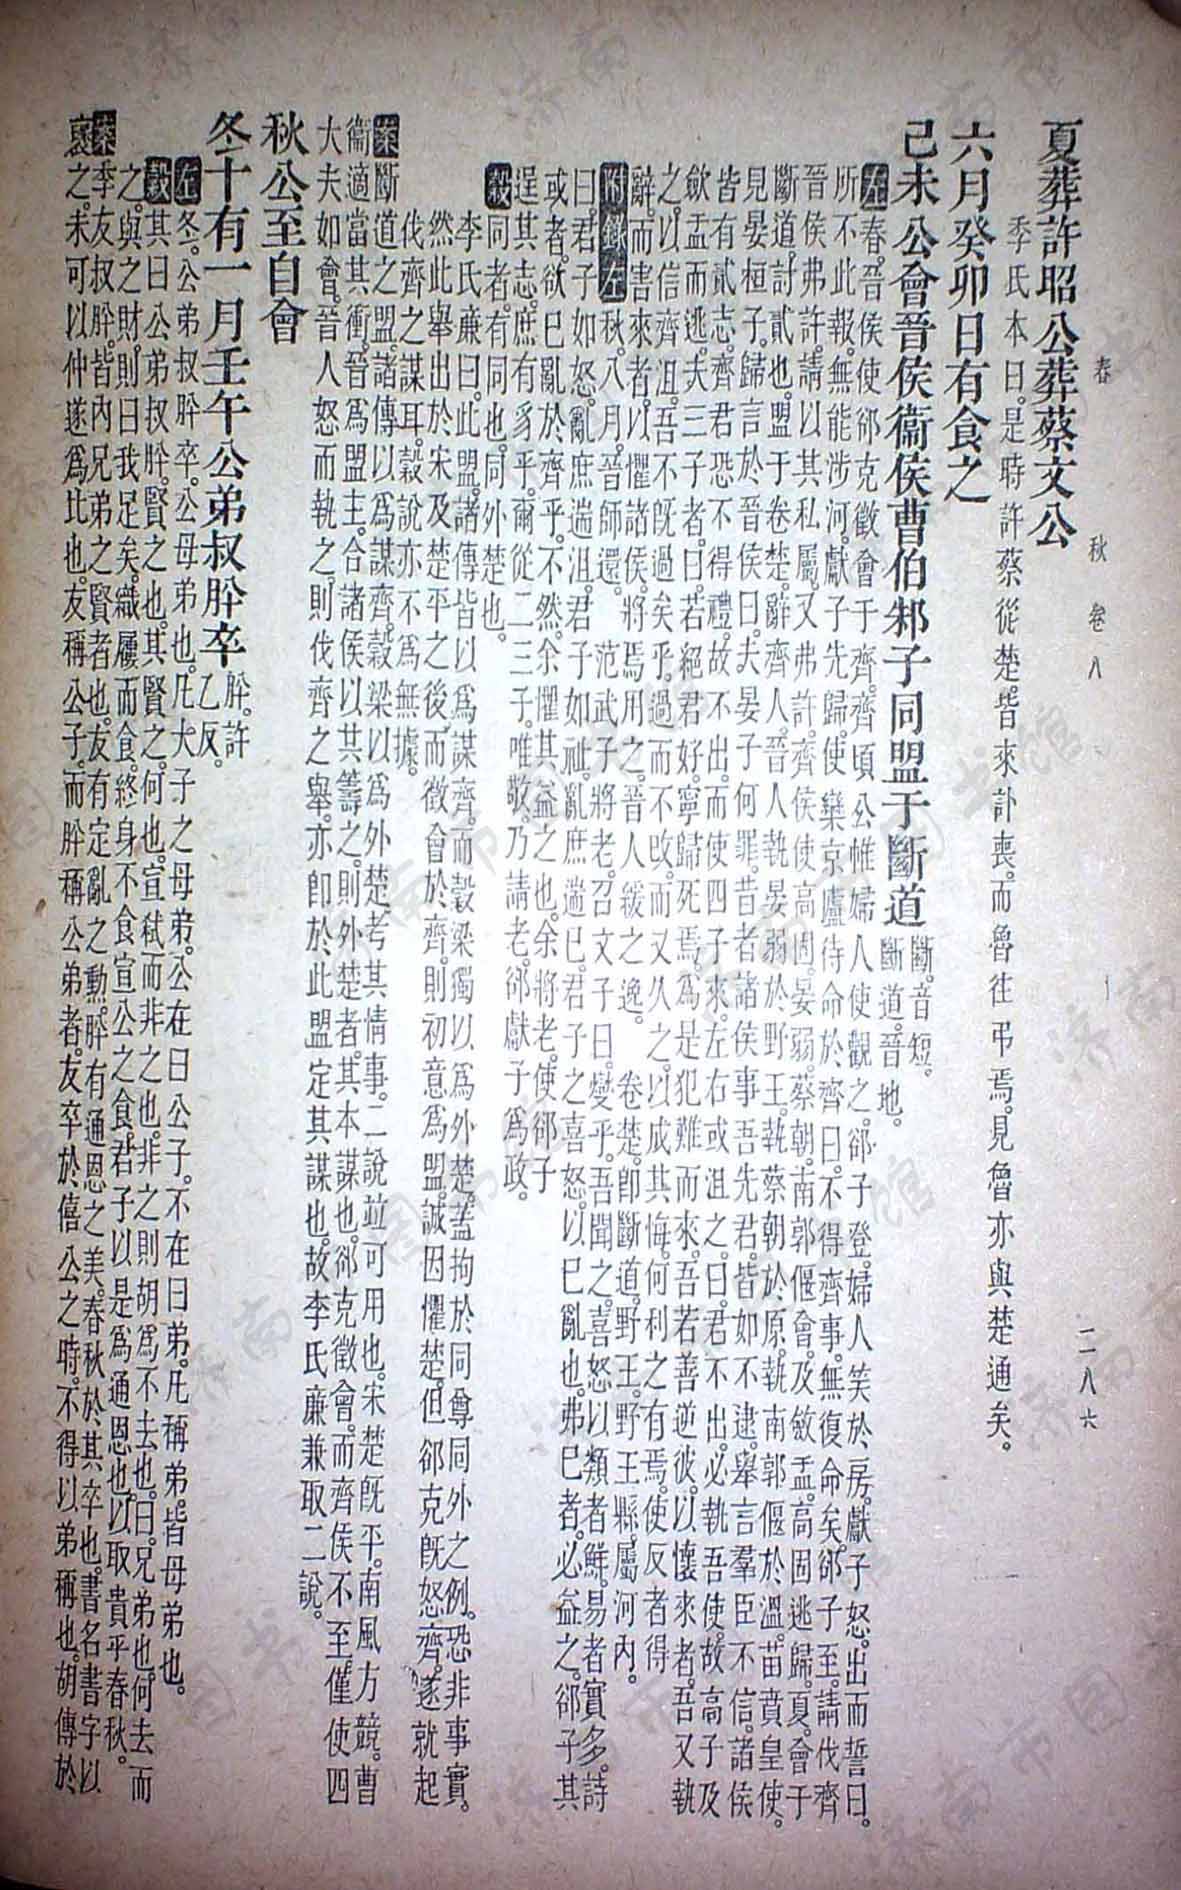 春　秋　卷八　二八六
夏葬許昭公葬蔡文公
季氏本曰。是時許蔡從楚。皆來訃喪。而魯往弔焉。見魯亦與楚通矣。
六月癸卯日有食之
己未公會晉侯衞侯曹伯邾子同盟于斷道
斷。音短。
斷道。晉地。
左春。晉侯使郤克徵會于齊。齊頃公帷婦人使觀之。郤子登。婦人笑於房。獻子怒。出而誓曰。
所不此報。無能涉河。獻子先歸。使欒京廬待命於齊曰。不得齊事。無復命矣。郤子至。請伐齊
晉侯弗許。請以其私屬。又弗許。齊侯使高固。晏弱。蔡朝。南郭偃會。及斂盂。高固逃歸。夏。會于
斷道。討貳也。盟于卷楚。辭齊人。晉人執晏弱於野王。執蔡朝於原。執南郭偃於溫。苗賁皇使。
見晏桓子。歸言於晉侯曰。夫晏子何罪。昔者諸侯事吾先君。皆如不逮。舉言羣臣不信。諸侯
皆有貳志。齊君恐不得禮。故不出。而使四子來。左右或沮之。曰。君不出。必執吾使。故高子及
斂盂而逃。夫三子者曰。若絕君好。寧歸死焉。爲是犯難而來。吾若善逆彼。以懷來者。吾又執
之。以信齊沮。吾不既過矣乎。過而不改。而又久之。以成其悔。何利之有焉。使反者得
辭。而害來者。以懼諸侯。將焉用之。晉人緩之。逸。　卷楚。即斷道。野王。野王縣。屬河內。
附錄左秋。八月。晉師還。　范武子將老。召文子曰。燮乎。吾聞之。喜怒以類者鮮。易者實多。詩
曰。君子如怒。亂庶遄沮。君子如祉。亂庶遄已。君子之喜怒。以已亂也。弗已者。必益之。郤子其
或者欲已亂於齊乎。不然。余懼其益之也。余將老。使郤子
逞其志。庶有豸乎。爾從二三子。唯敬。乃請老。郤獻子爲政。
穀同者。有同也。同外楚也。
李氏廉曰。此盟。諸傳皆以爲謀齊。而穀梁獨以爲外楚。蓋拘於同尊同外之例。恐非事實。
然此舉出於宋及楚平之後。而徵會於齊。則初意爲盟。誠因懼楚。但郤克既怒齊。遂就起
伐齊之謀耳。穀說亦不爲無據。
案斷道之盟。諸傳以爲謀齊。穀梁以爲外楚。考其情事。二說並可用也。宋楚既平。南風方競。曹
衞適當其衝。晉爲盟主。合諸侯以其籌之。則外楚者。其本謀也。郤克徵會。而齊侯不至。僅使四
大夫如會。晉人怒而執之。則伐齊之舉。亦卽於此盟定其謀也。故李氏廉兼取二說。
秋公至自會
冬十有一月壬午公弟叔肸卒
肸。許
乙反。
左冬。公弟叔肸卒。公母弟也。凡大子之母弟。公在曰公子。不在曰弟。凡稱弟。皆母弟也。
穀其曰公弟叔肸。賢之也。其賢之。何也。宣弒而非之也。非之則胡爲不去也。曰。兄弟也。何去而
之。與之財。則曰我足矣。織屨而食。終身不食宣公之食。君子以是爲通恩也。以取貴乎春秋。
案季友叔肸。皆內兄弟之賢者也。友有定亂之勳。肸有通恩之美。春秋於其卒也。書名書字以
襃之。未可以仲遂爲比也。友稱公子。而肸稱公弟者。友卒於僖公之時。不得以弟稱也。胡傳於